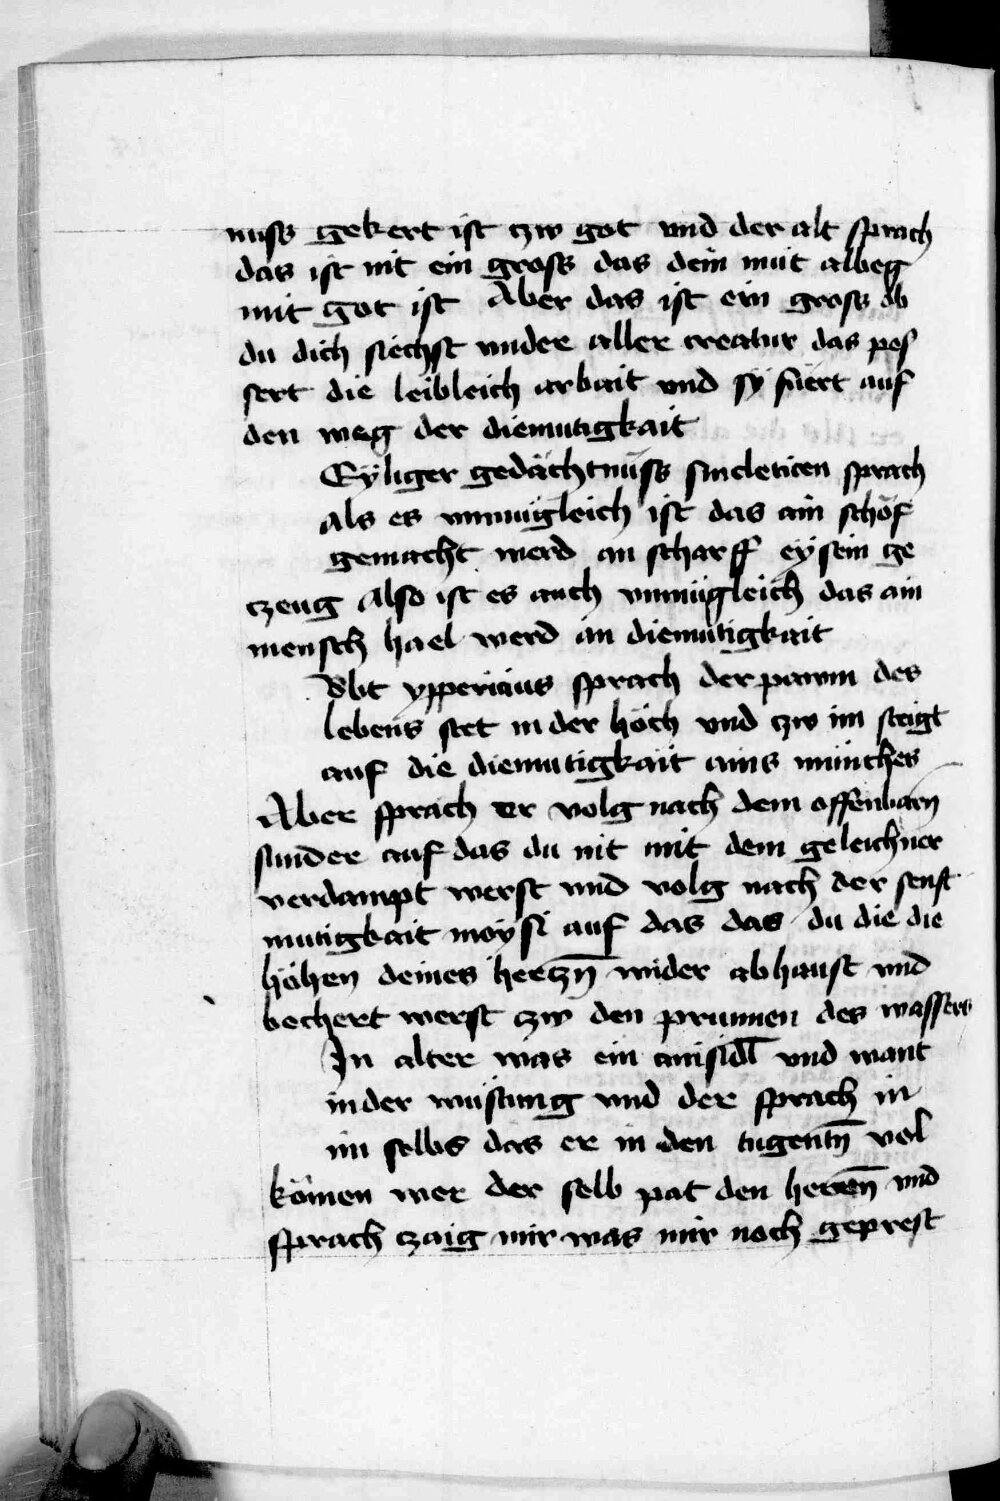 nuss gekert ist czw got vnd der alt sprach
das ist nit ein gross das dein mut albeg
mit got ist Aber das ist ein gross ob
du dich siechst vnder aller creatur das pes
sert die leibleich arbait vnd sy fuert auf
den weg der diemutigkait
Eyliger gedächtnüss sincleticen sprach
Als es vnmugleich ist das ain schöf
gemacht werd an scharff eysein ge
czeug Also ist es auch vnmügleich das ain
mensch hael werd an diemütigkait
Abt ypericius sprach der pawm des
lebens stet in der höch vnd czw im steigt
auf die diemutigkait ains münches
Aber sprach er volg nach dem offenbarn
sunder auf das du nit mit dem geleichner
verdampt werst vnd volg nach der senft
mutigkait moysi auf das das du die die
höhen deines hertzn̄ wider abhaust vnd
bechert werst czw den prunnen des wassers
In alter was ein ainsidl̄ vnd want
in der wüstung vnd der sprach in
im selbs das er in den tugentn̄ vol
kömen wer der selb pat den herren̄ vnd
sprach czaig mir was mir noch geprest